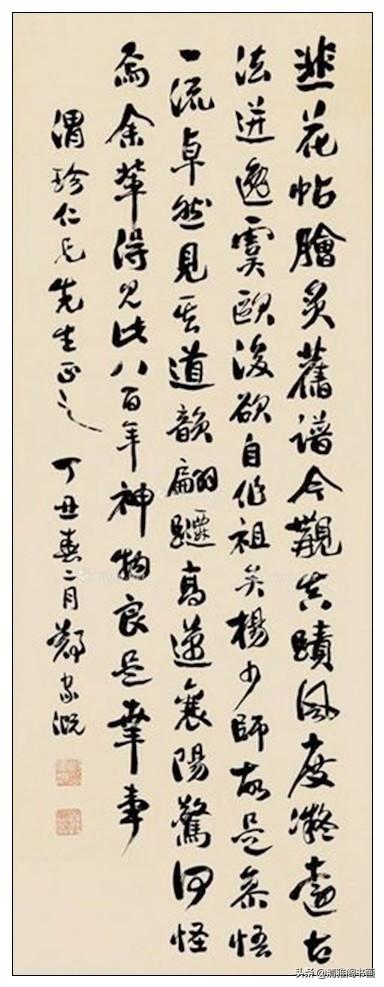 韭花帖膾炙舊譜今觀真蹟風度凝遠古
法迸逸虞歐後欲自作祖矣楊少師故是參悟
一流卓然見其道韻翩躚高襄陽驚何怪
焉余輩得見此八百年神物良是幸事
渭珍仁兄先生正之 丁丑春二月 鄭家溉
头条 @清雅阁书画